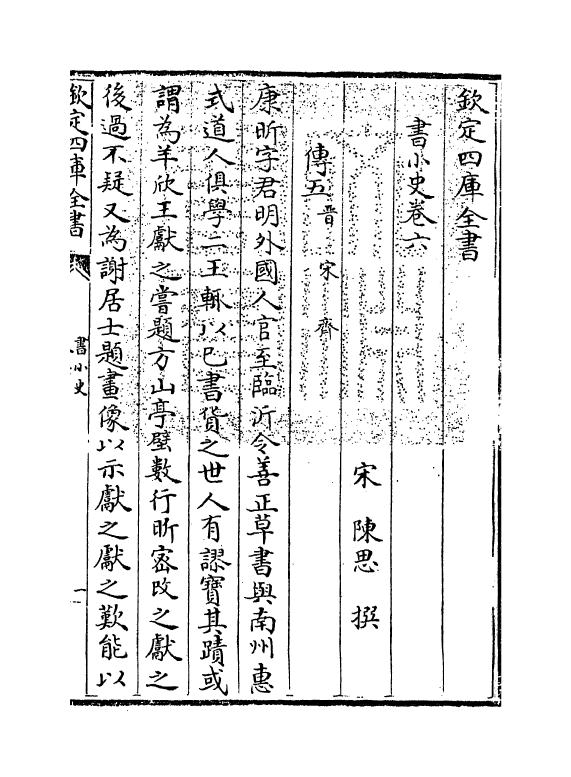 欽定四庫全書
書小史卷六
宋 陳思 撰
傳五 晉 宋 齊
康昕字君明外國人官至臨沂令善正草書與南州惠
式道人俱學二王輒以已書貨之世人有謬寶其蹟或
謂為羊欣王獻之嘗題方山亭壁數行昕密改之獻之
後過不疑又為謝居士題畫像以示獻之獻之歎能以
欽定四庫全書
書小史
一